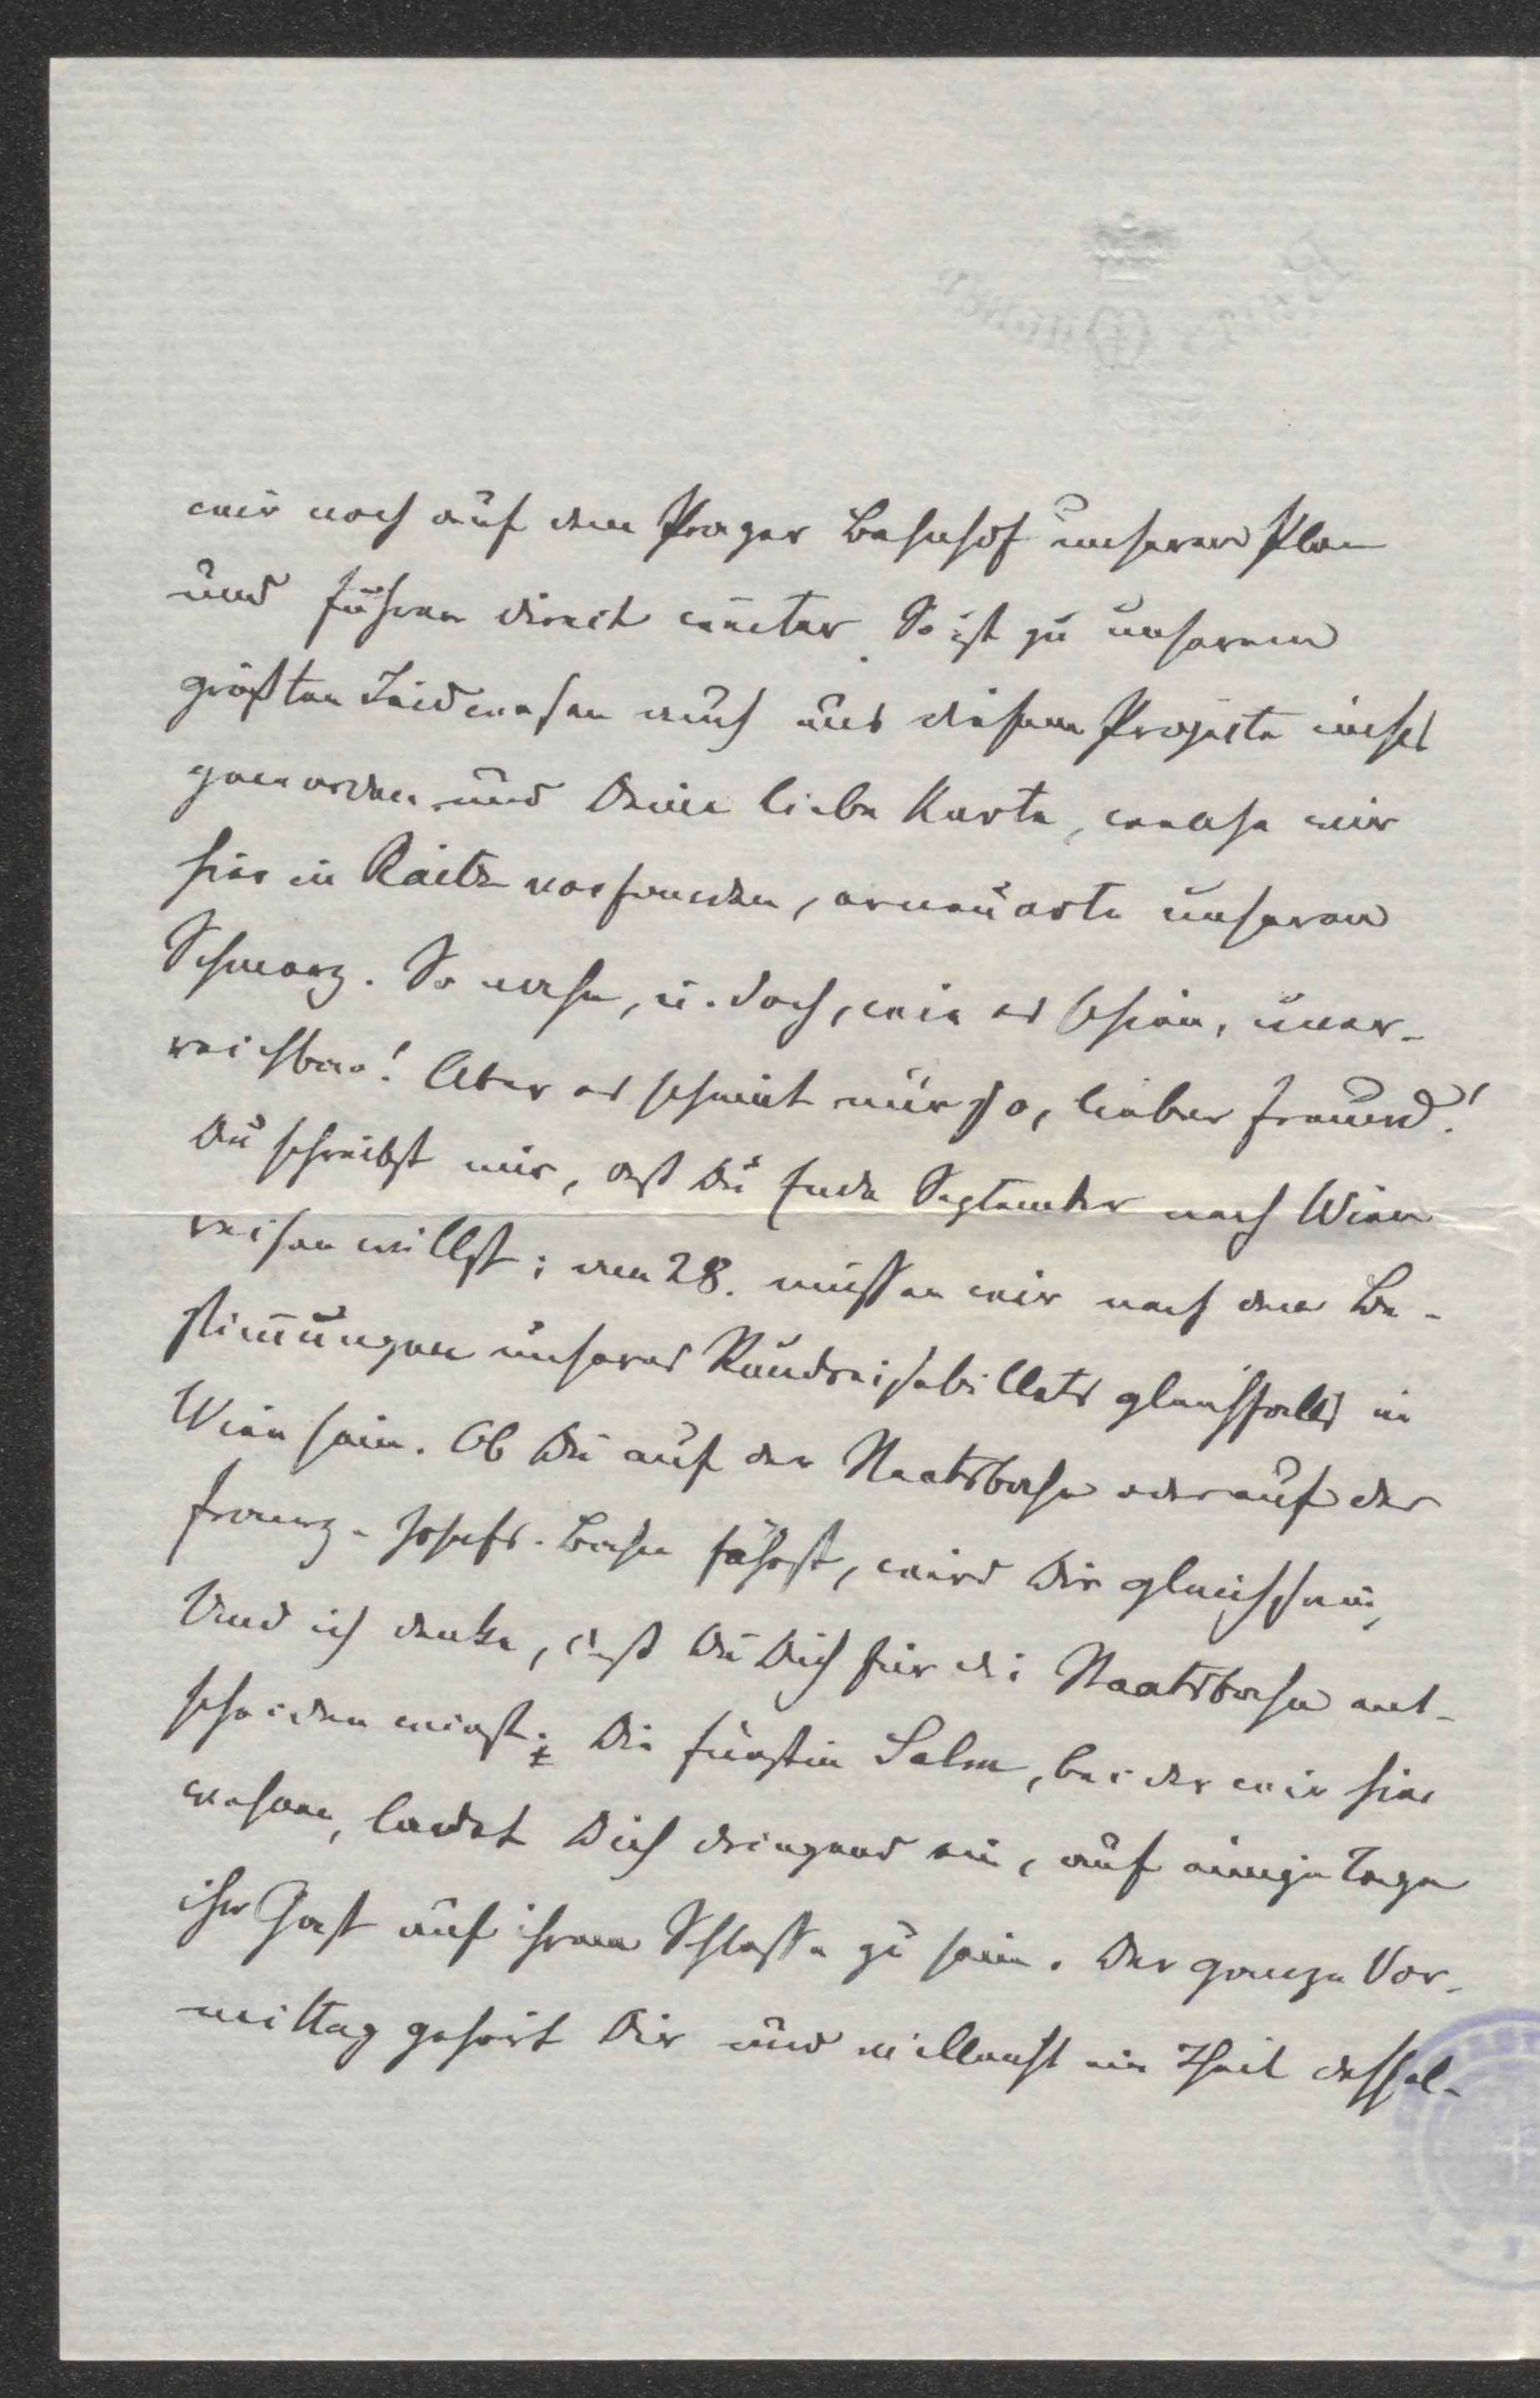 wir noch auf dem Prager Bahnhof unseren Plan
und fuhren direct weiter. So ist zu unserem
größten Leidwesen auch aus diesem Projecte nichts
geworden und Deine liebe Karte, welche wir
hier in Raitz vorfanden, erneuerte unseren
Schmerz. So nahe, u. doch, wie es schien, uner-
reichbar! Aber es scheint nur so, lieber Freund!
Du schreibst mir, daß Du Ende September nach Wien
reisen willst; am 28. müssen wir nach den Be-
stimmungen unseres Rundreisebillets gleichfalls in
Wien sein. Ob Du auf der Staatsbahn oder auf der
Franz-Josefs-Bahn fährst, wird Dir gleich sein,
Und ich denke, daß Du Dich für die Staatsbahn ent-
scheiden wirst; Die Fürstin Salm, bei der wir hier
wohnen, ladet Dich dringend ein, auf einige Tage
ihr Gast auf ihrem Schlosse zu sein. Der ganze Vor-
mittag gehört Dir und vielleicht ein Theil dessel-